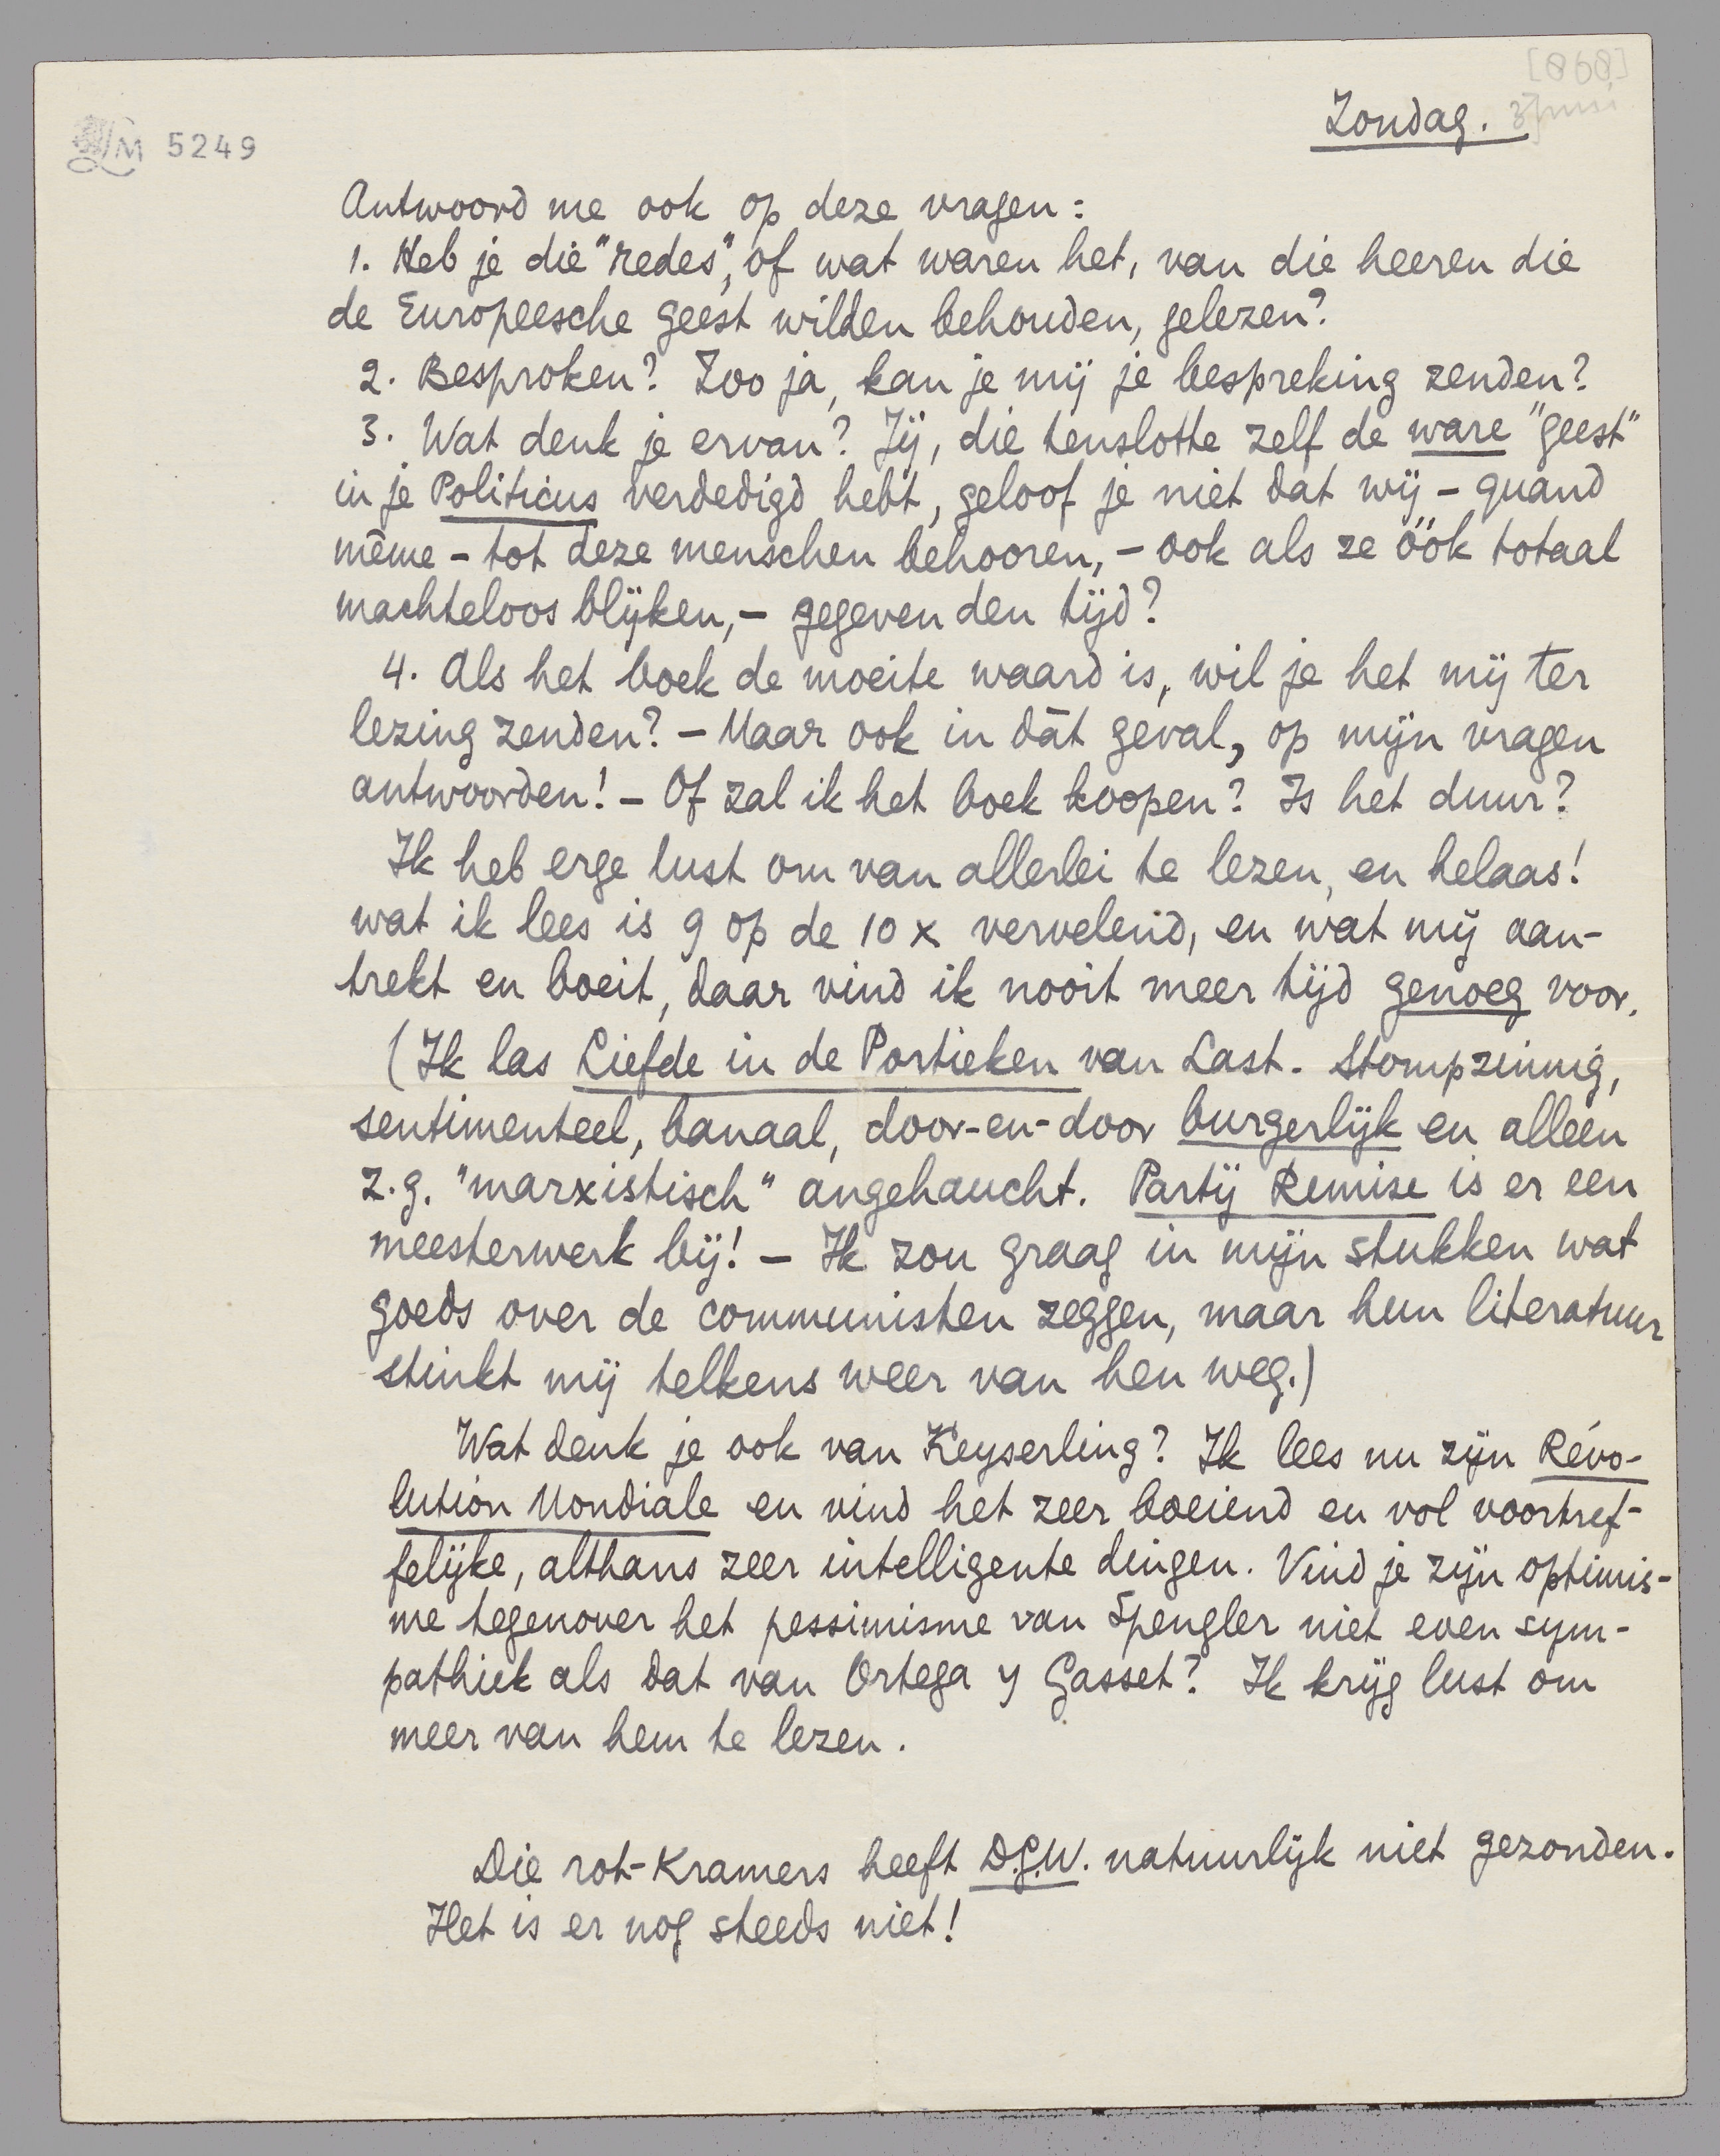 [868]
Zondag. 3 juni
LM 5249
Antwoord me ook op deze vragen:
1. Heb je die "redes", of wat waren het, van die heeren die
de Europeesche geest wilden behouden, gelezen?
2. Besproken? Zoo ja, kan je mij je bespreking zenden?
3. Wat denk je ervan? Jij, die tenslotte zelf de ware "geest"
in je Politicus verdedigd hebt, geloof je niet dat wij - quand
même - tot deze menschen behooren, - ook als ze óók totaal
machteloos blijken, - gegeven den tijd?
4. Als het boek de moeite waard is, wil je het mij ter
lezing zenden? - Maar ook in dàt geval, op mijn vragen
antwoorden! - Of zal ik het boek koopen? Is het duur?
Ik heb erge lust om van allerlei te lezen, en helaas!
wat ik lees is 9 op de 10 x vervelend, en wat mij aan-
trekt en boeit, daar vind ik nooit meer tijd genoeg voor.
(Ik las Liefde in de Portieken van Last. Stompzinnig,
sentimenteel, banaal, door-en-door burgerlijk en alleen
z.g. "marxistisch" angehaucht. Partij Remise is er een
meesterwerk bij! - Ik zou graag in mijn stukken wat
goeds over de communisten zeggen, maar hun literatuur
stinkt mij telkens weer van hen weg.)
Wat denk je ook van Keyserling? Ik lees nu zijn Révo-
lution Mondiale en vind het zeer boeiend en vol voortref-
felijke, althans zeer intelligente dingen. Vind je zijn optimis-
me tegenover het pessimisme van Spengler niet even sym-
pathiek als dat van Ortega y Gasset? Ik krijg lust om
meer van hem te lezen.
Die rot-Kramers heeft D.G.W. natuurlijk niet gezonden.
Het is er nog steeds niet!